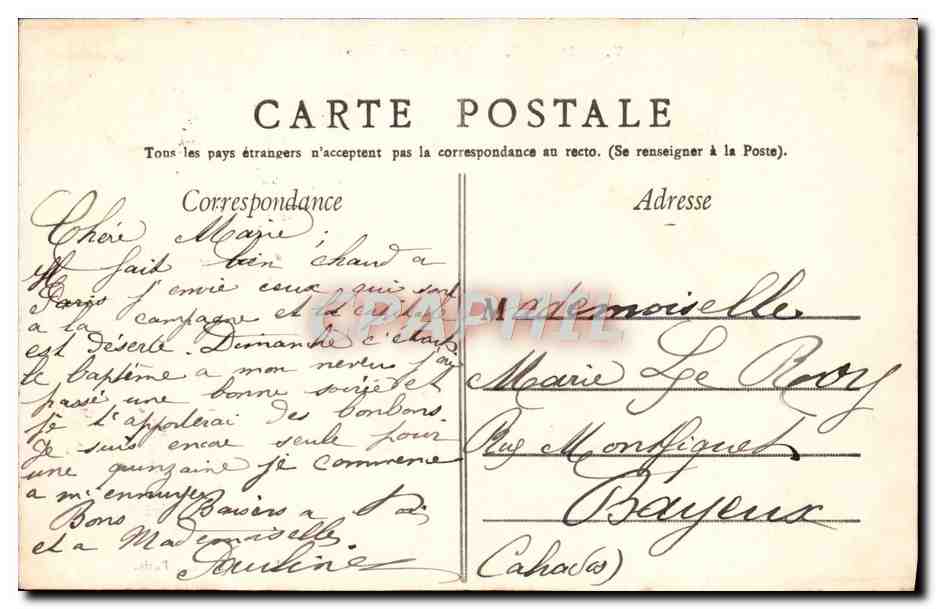 CARTE POSTALE
Tous les pays étrangers n'acceptent pas la correspondance au recto. (Se renseigner à la Poste).
Correspondance
Chére Marie,
Il fait bien chaud a
Paris j'envie ceux qui sont
a la campagne et la capitale
est déserte. Dimanche c'était
le baptême a mon neveu j'ai
passé une bonne soirée et
je t'apporterai des bonbons
Je suis encore seule pour
une quinzaine je commence
a m'ennuyer
Bons Baisers a toi
et a Mademoiselle
Pauline
Adresse
Mademoiselle
Marie Le Roy
Rue Montfiquet
Bayeux
(Calvados)
CPAPHIL